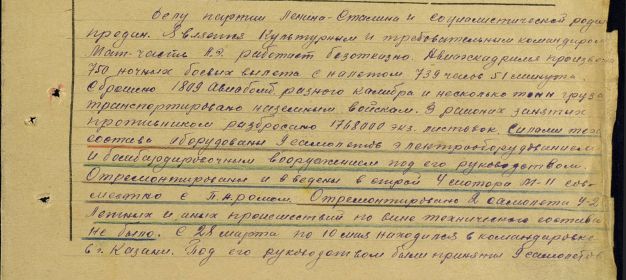 Делу партии Ленина-Сталина и социалистической роди
предан. Является культурным и требовательным командиром
Мат-часть А.Э. работает безотказно. Авиаэскадрилия произвела
750 ночных боевых вылета с налетом 739 часов 51 минута.
Сброшено 1809 Авиабомб разного калибра и несколько тонн груза
транспортировано наземным войскам. В районах занятых
противником разбросано 1768000 экз. листовок. Силами тех
состава оборудованы 9 самолетов электрооборудованием
и бомбардировочным вооружением под его руководством.
Отремонтировано и введены в строй 4 мотора М-11 сов-
местно с П.А.Р.омом. Отремонтировано 2 самолета У-2
Летных и иных происшествий по вине технического состава
не было. С 28 марта по 10 мая находился в командировке
в г. Казани. Под его руководством были приняты 9 самолетов